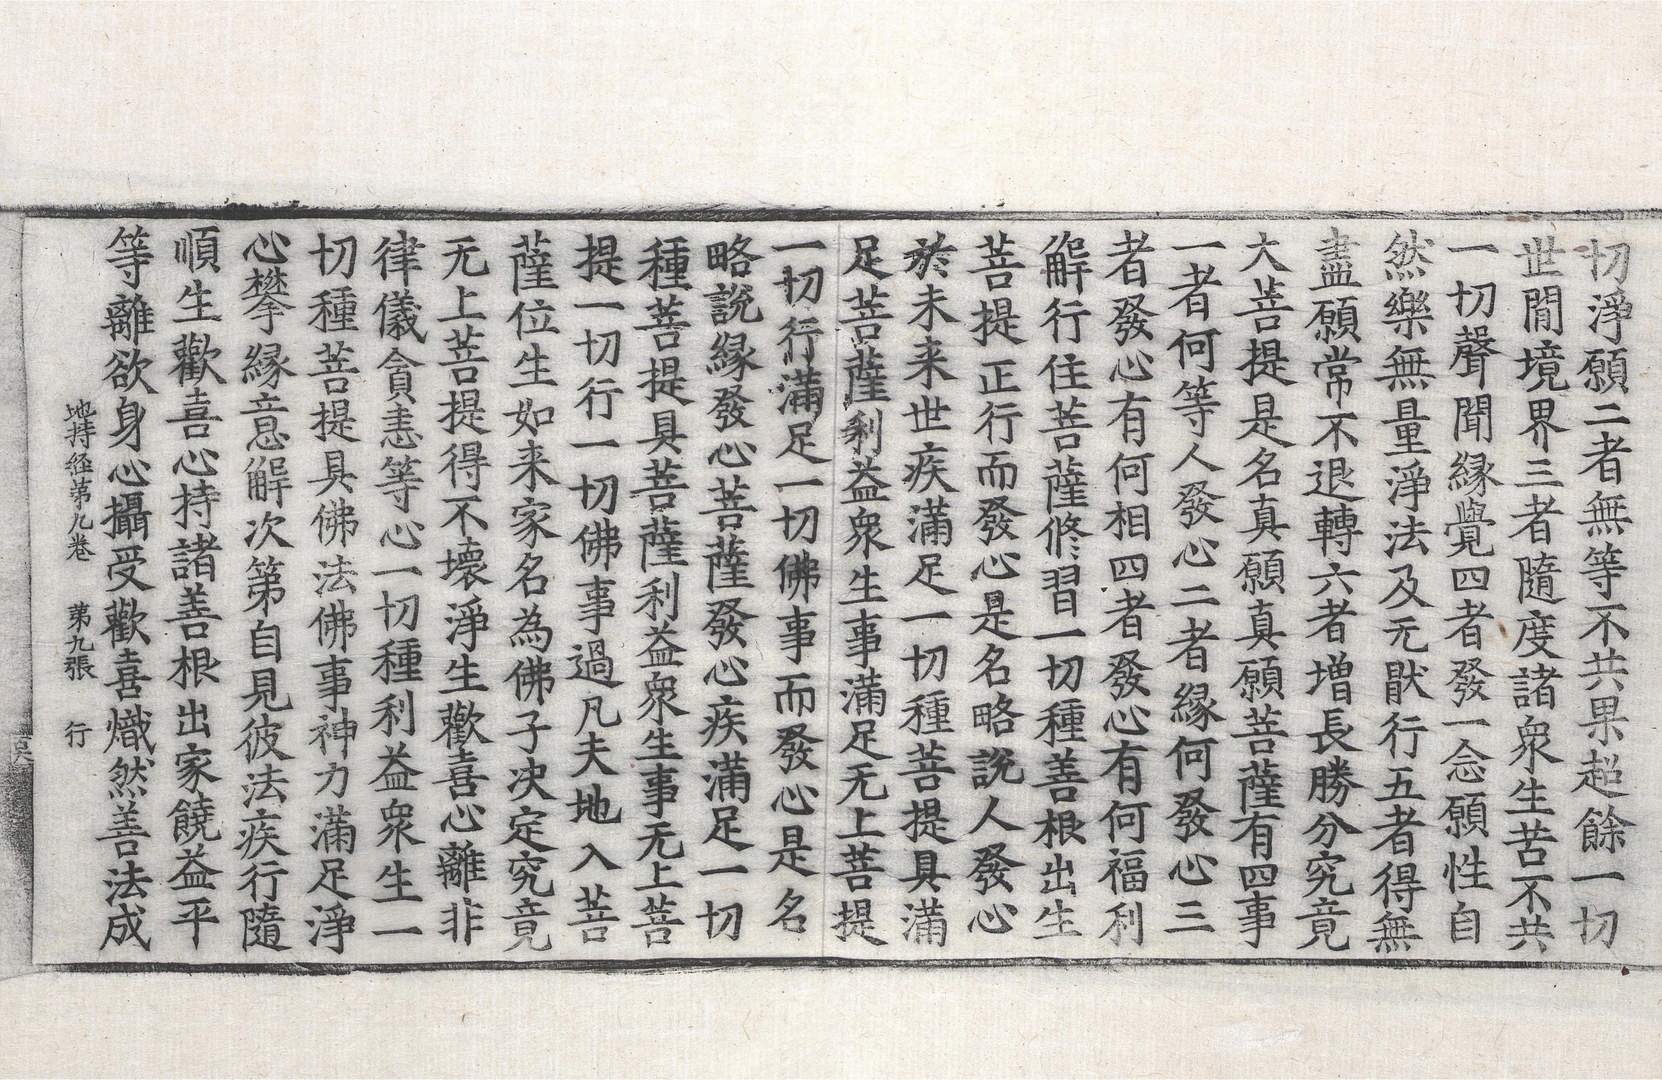 切淨願二者無等不共果超餘一切
世間境界三者隨度諸衆生苦不共
一切聲聞縁覺四者發一念願性自
然樂無量淨法及无猒行五者得無
盡願常不退轉六者增長勝分究竟
大菩提是名真願真願菩薩有四事
一者何等人發心二者縁何發心三
者發心有何相四者發心有何福利
解行住菩薩修習一切種善根出生
菩提正行而發心是名略說人發心
於未来世疾滿足一切種菩提具滿
足菩薩利益衆生事滿足无上菩提
一切行滿足一切佛事而發心是名
略說縁發心菩薩發心疾滿足一切
種菩提具菩薩利益衆生事无上菩
提一切行一切佛事過凡夫地入菩
薩位生如来家名為佛子決定究竟
无上菩提得不壞淨生歡喜心離非
律儀貪恚等心一切種利益衆生一
切種菩提具佛法佛事神力滿足淨
心攀縁意解次第自見彼法疾行隨
順生歡喜心持諸善根出家饒益平
等離欲身心攝受歡喜熾然善法成
地持経第九卷 第九張 行